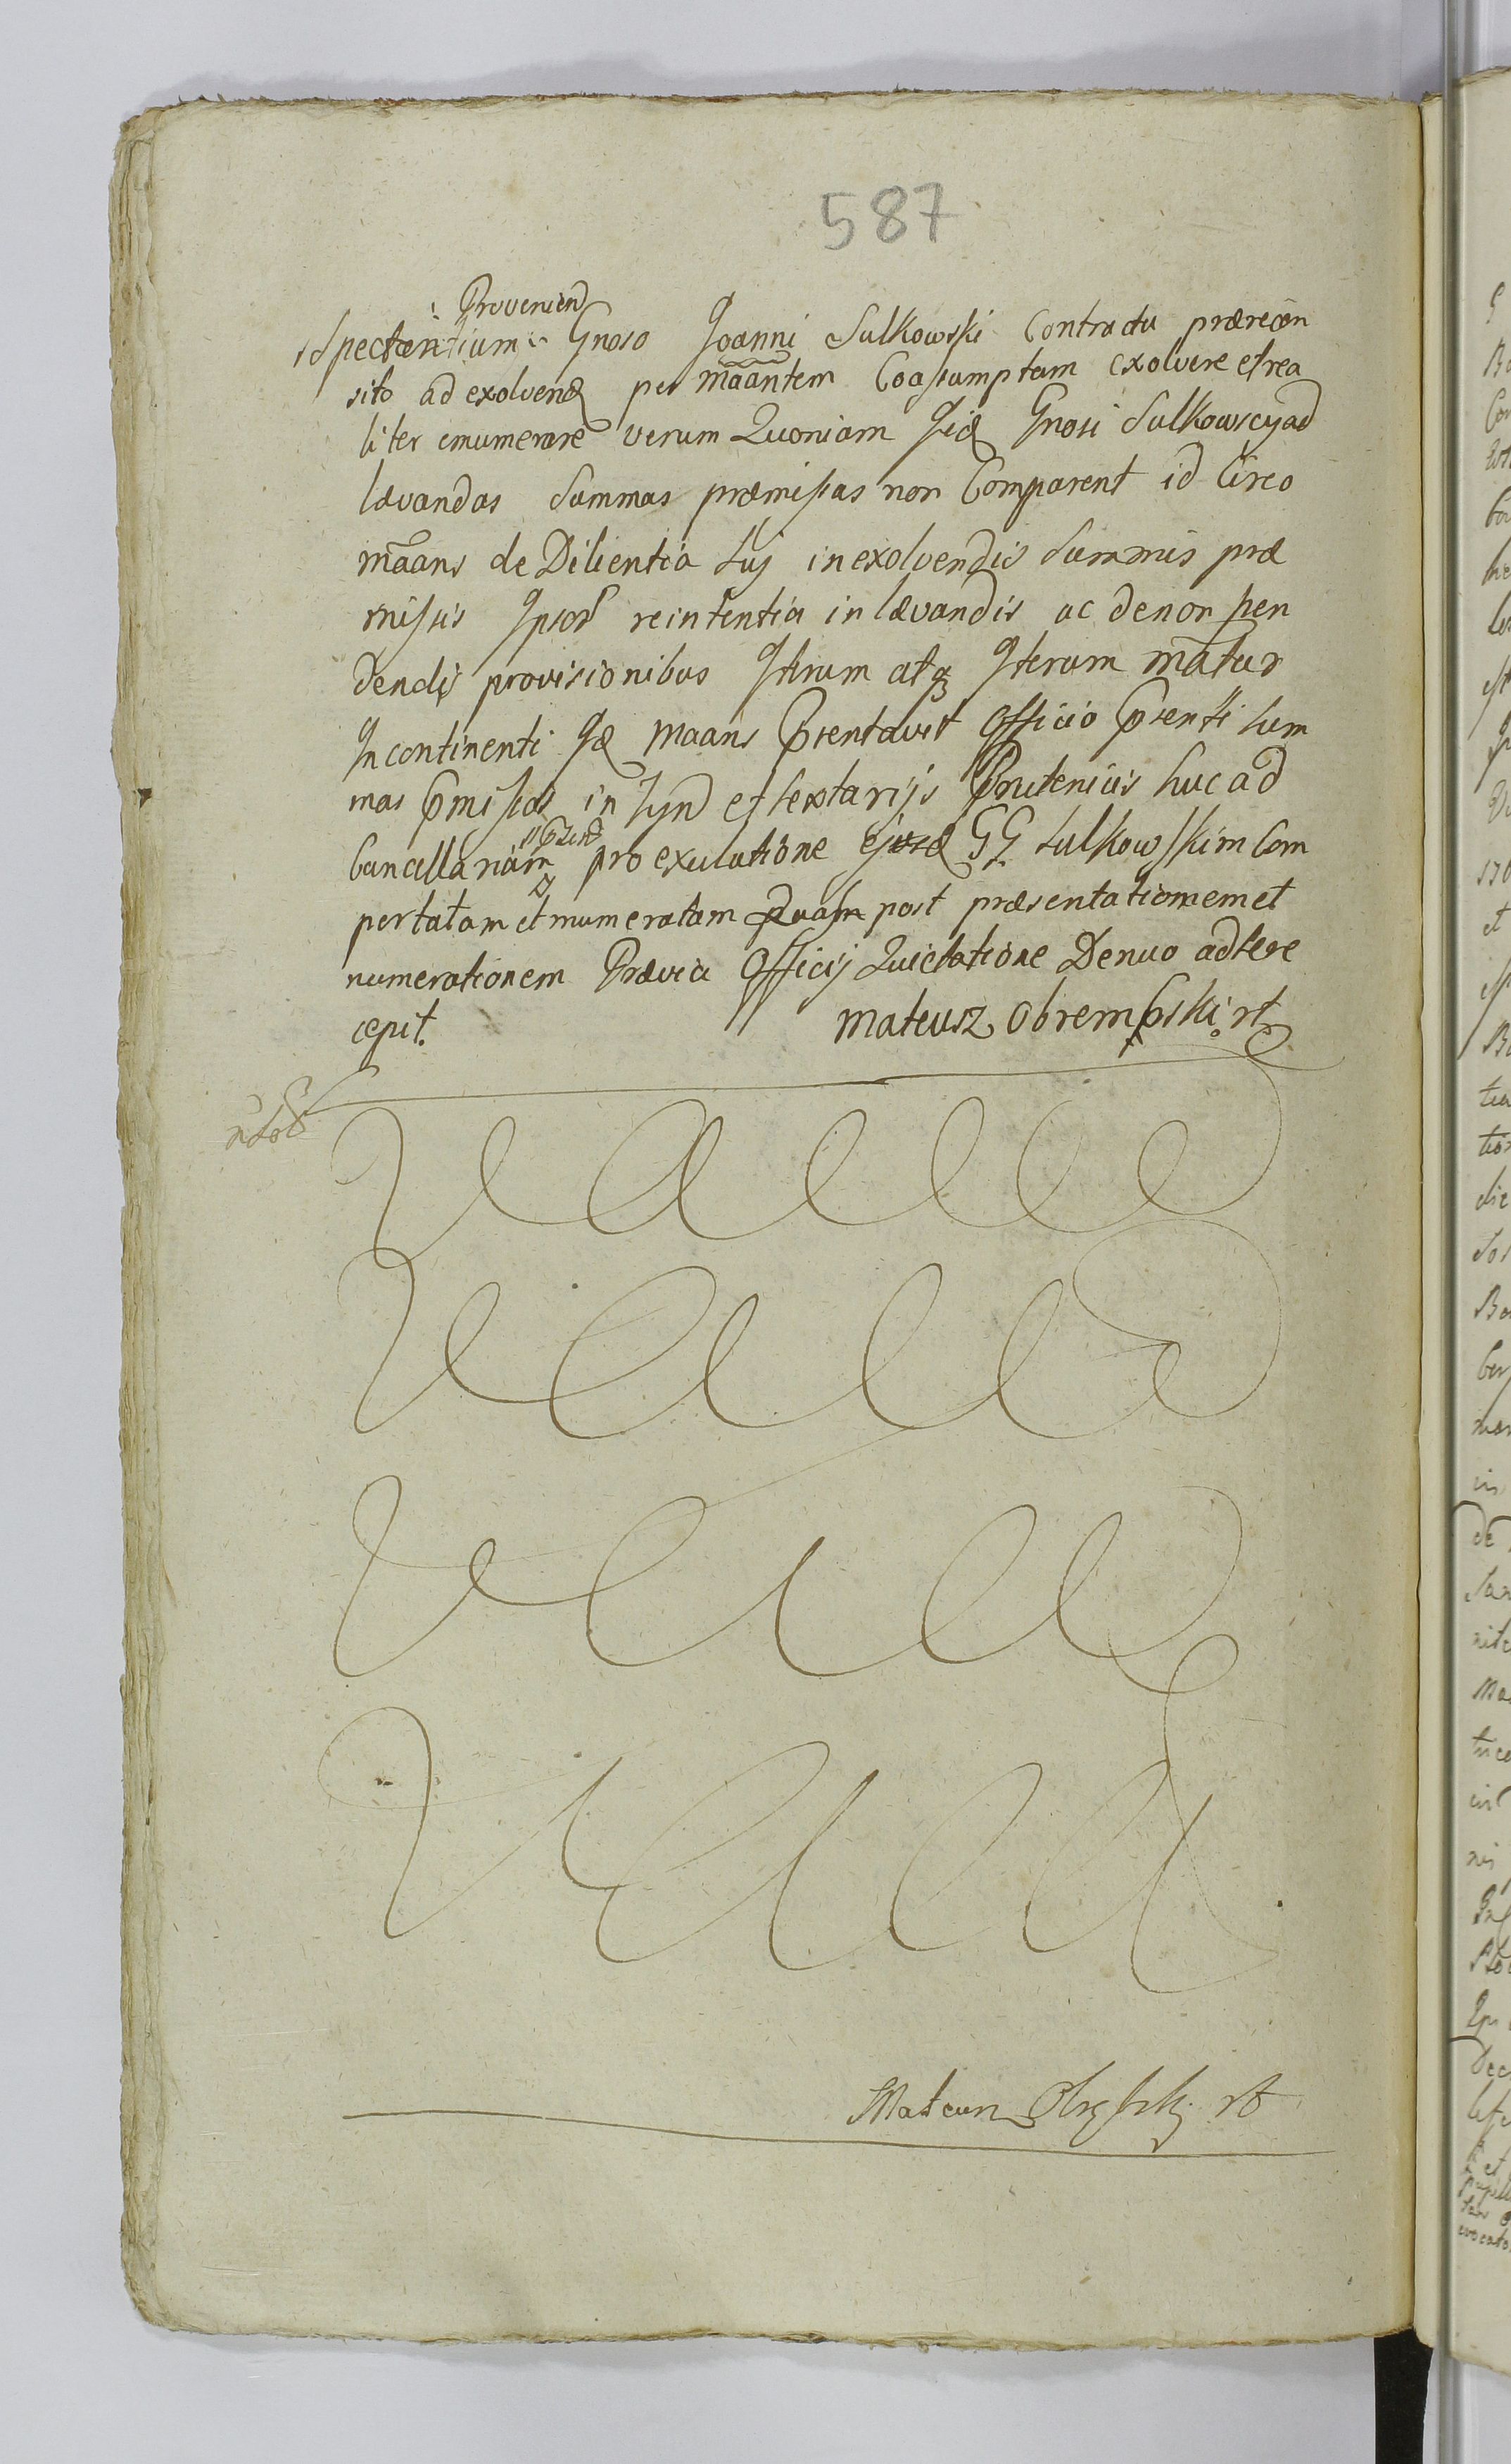 587
Provenien
Spectantium Gnoso Joanni Sulkowski Contractu prærecen
sito ad exolvend per maantem Coassumptam exolvere et rea
liter enumerare verum Quoniam Gnosi Sulkowscy ad
lævandas Summas præmissas non Comparent id Circo
maans de Dilientia Suj in exolvendis Summis præ
missis Ipsor reintentia in lævandis ac de non pen
dendis provisionibus Iterum atq Iterum mātur
In continenti Id maans Prentavit Officio Prenti Sum
mas Pmissas in Tynf et Sextarijs Prutenicis huc ad
Cancellariam pro exulutione ejusd GG Sulkowskim Com
portatam et numeratam Quam post præsentationem et
numerationem Prævia Officij Quietatione Denuo ad se re
cepit. Mateusz Obrembski rt
Mateusz rt